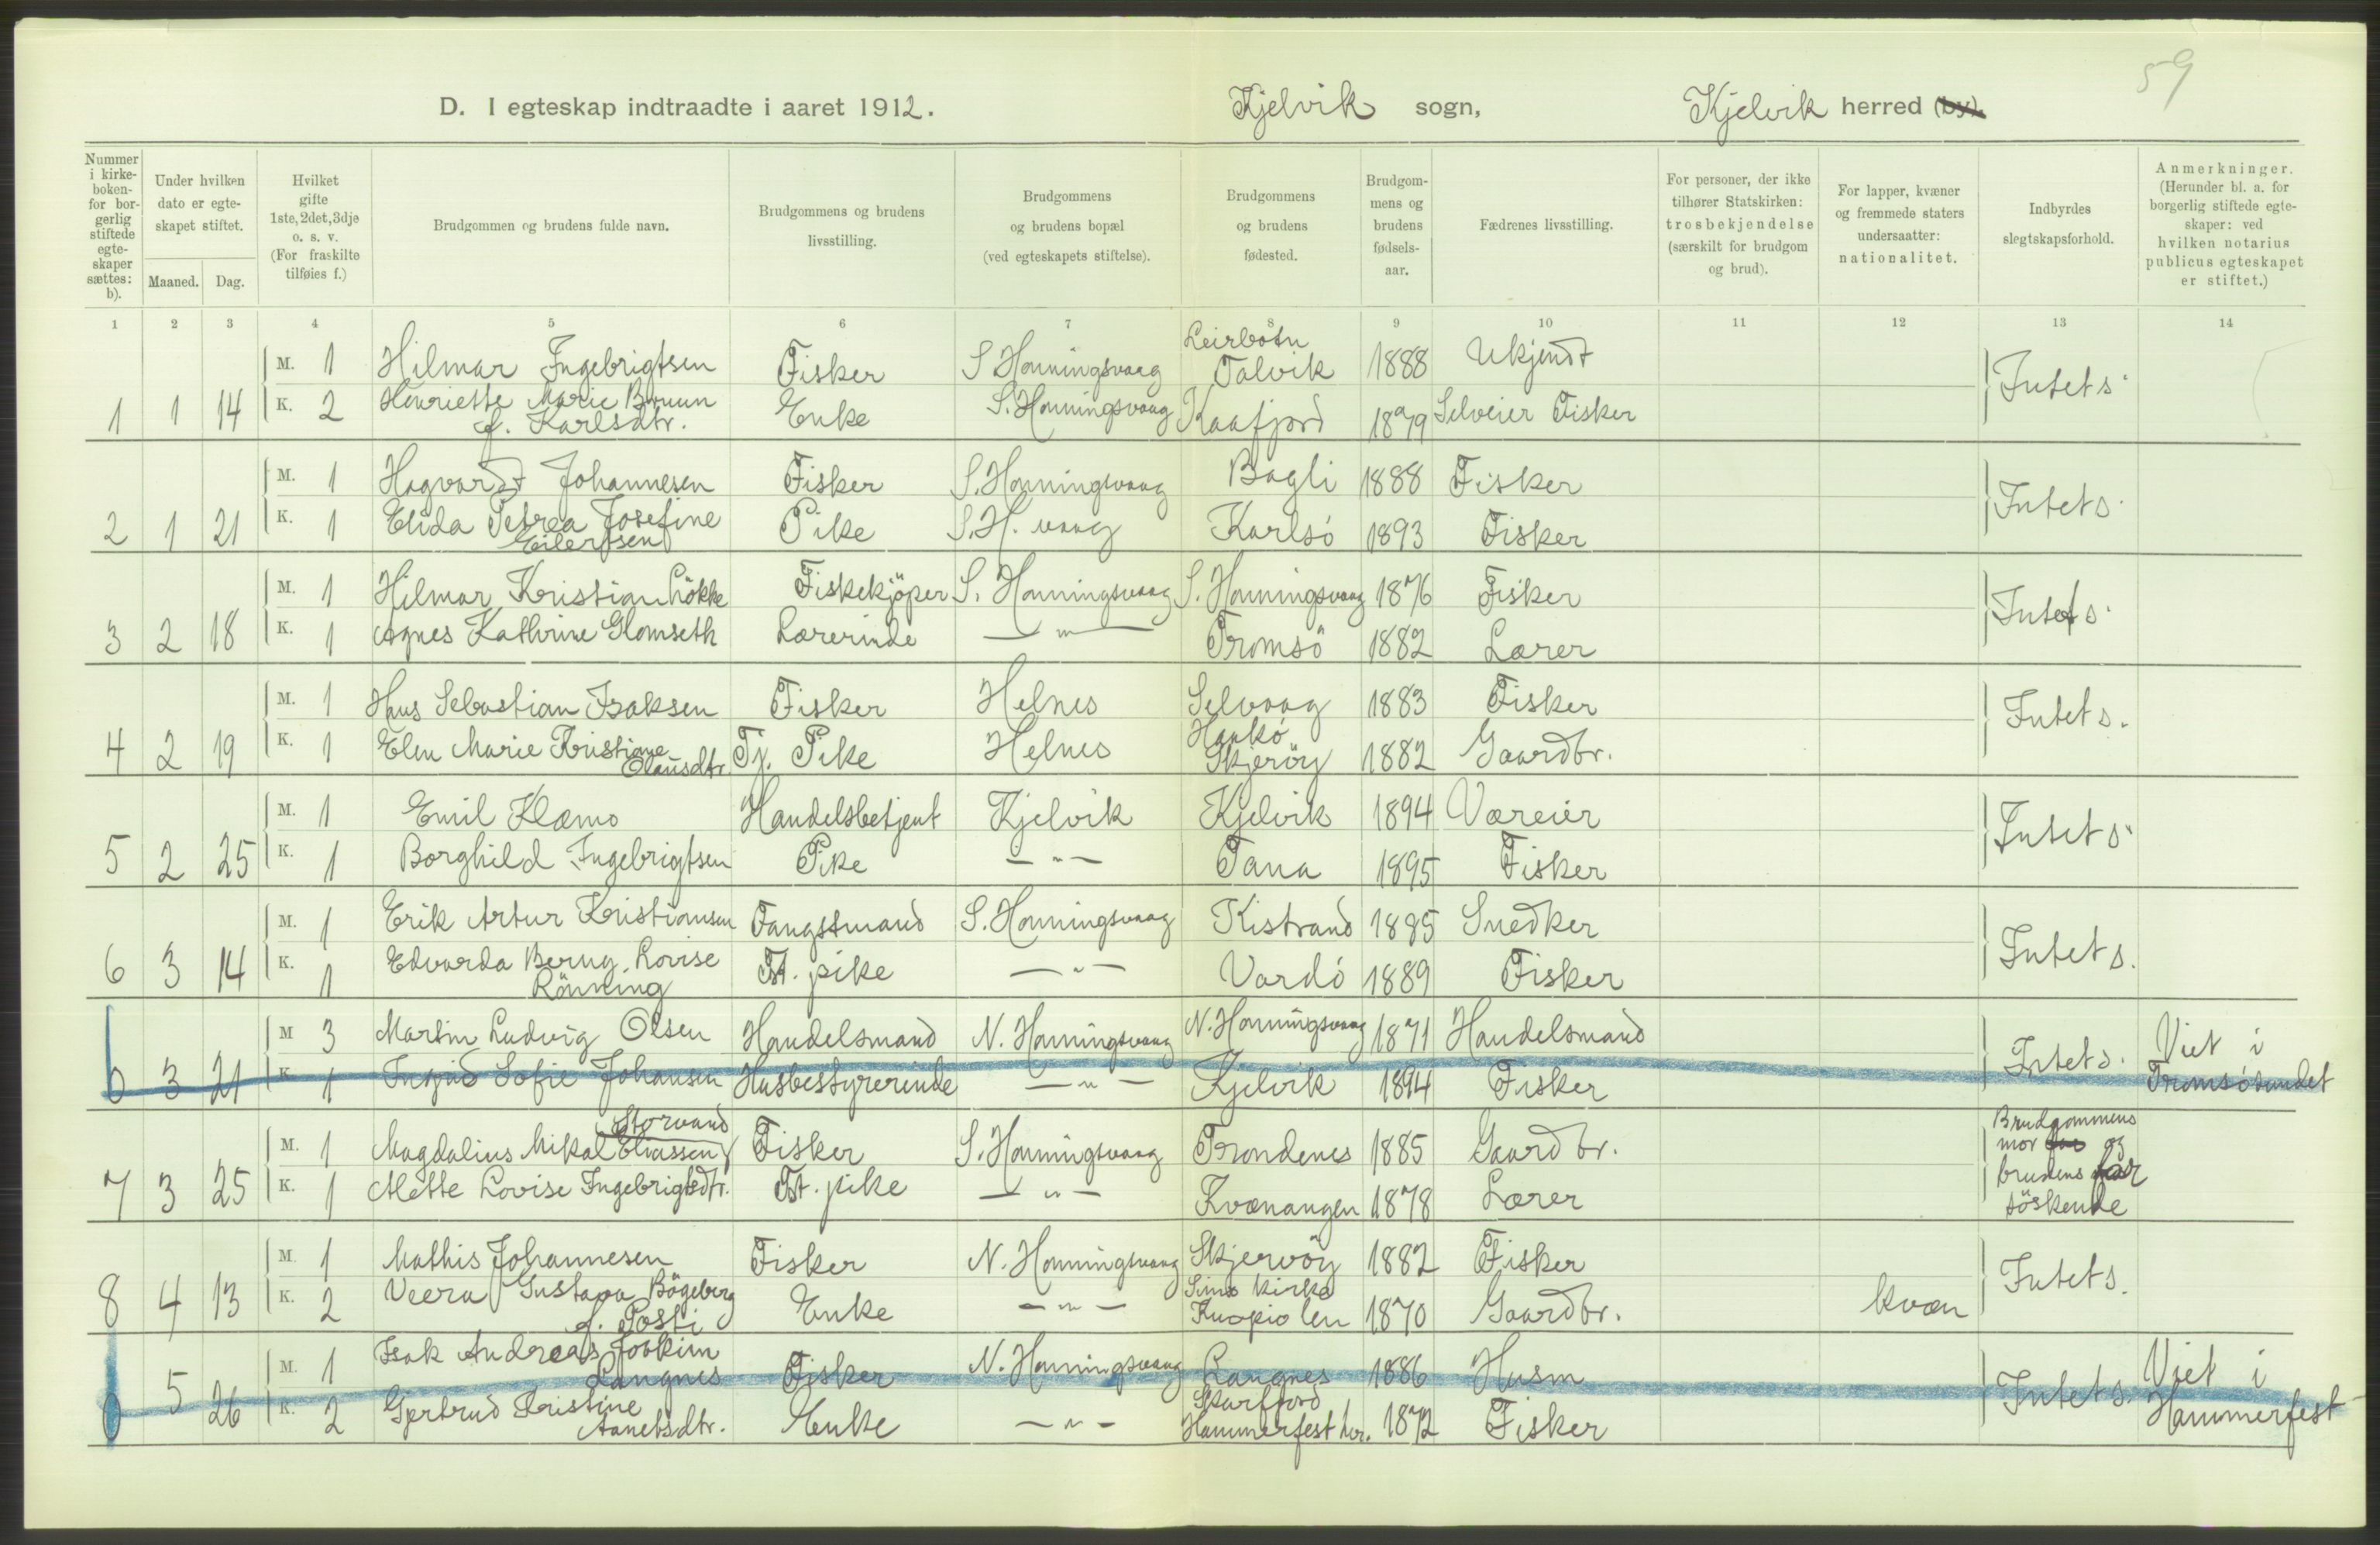 59
D. I egteskap indtraadte i aaret 1912. Kjelvik sogn, Kjelvik herred (by).
Nummer i kirkeboken- for borgerlig stiftede egteskaper sættes: b).
Under hvilken dato er egteskapet stiftet.
Maaned. Dag.
Hvilket gifte 1ste, 2det, 3dje o. s. v. (For fraskilte tilføies f.)
Brudgommen og brudens fulde navn.
Brudgommens og brudens livsstilling.
Brudgommens og brudens bopæl (ved egteskapets stiftelse).
Brudgommens og brudens fødested.
Brudgommens og brudens fødselsaar.
Fædrenes livsstilling.
For personer, der ikke tilhører Statskirken: trosbekjendelse (særskilt for brudgom og brud).
For lapper, kvæner og fremmede staters undersaatter: nationalitet.
Indbyrdes slegtskapsforhold.
Anmerkninger. (Herunder bl. a. for borgerlig stiftede egteskaper: ved hvilken notarius publicus egteskapet er stiftet.)
1 2 3 4 5 6 7 8 9 10 11 12 13 14
M. 1 Hilmar Ingebrigtsen Fisker S. Honningsvaag Leirbotn Talvik 1888 Ukjendt Intets.
1 1 14 K. 2 Henriette Marie Bruun f. Karlsdtr. Enke S. Honningsvaag Kaafjord 1879 Selveier Fisker
M. 1 Hagvardt Johannesen Fisker S. Honningsvaag Bagli 1888 Fisker Intets.
2 1 21 K. 1 Elida Petrea Josefine Eilertsen Pike S. H. vaag Karlsö 1893 Fisker
M. 1 Hilmar Kristian Lökke Fiskekjöper S. Honningsvaag S. Honningsvaag 1876 Fisker Intets.
3 2 18 K. 1 Agnes Kathrine Glomseth Lærerinde — " — Tromsö 1882 Lærer
M. 1 Hans Sebastian Isaksen Fisker Helnes Selvaag 1883 Fisker Intets.
4 2 19 K. 1 Elen Marie Kristiane Olausdtr. Tj. Pike Helnes Haukö Skjeröy 1882 Gaardbr.
M. 1 Emil Klæmo Handelsbetjent Kjelvik Kjelvik 1894 Væreier Intets.
5 2 25 K. 1 Borghild Ingebrigtsen Pike — " — Tana 1895 Fisker
M. 1 Erik Artur Kristiansen Fangstmand S. Honningsvaag Kistrand 1885 Snedker Intets.
6 3 14 K. 1 Edvarda Berng. Lovise Rönning Tst. pike — " — Vardö 1889 Fisker
M 3 Martin Ludvig Olsen Handelsmand N. Honningsvaag N. Honningsvaag 1871 Handelsmand Intets. Viet i
3 21 K. 1 Ingrid Sofie Johansen Husbestyrerinde — " — Kjelvik 1894 Fisker Tromsösundet
M. 1 Magdalius Mikal Eliassen Storvand Fisker S. Honningsvaag Trondenes 1885 Gaardbr. Brudgommens mor og brudens far söskende
7 3 25 K. 1 Mette Lovise Ingebrigtsdtr. Tst. pike — " — Kvænangen 1878 Lærer
M. 1 Mathis Johannesen Fisker N. Honningsvaag Skjervöy 1882 Fisker Intets.
8 4 13 K. 2 Veera Gustava Bögeberg f. Posti Enke — " — Simo kirke Kuopio len 1870 Gaardbr. kvæn
M. 1 Isak Andreas Joakim Langnes Fisker N. Honningsvaag Langnes 1886 Husm Intets. Viet i
5 26 K. 2 Gjertrud Kristine Aanetsdtr. Enke — " — Skarfjord Hammerfest her. 1872 Fisker Hammerfest